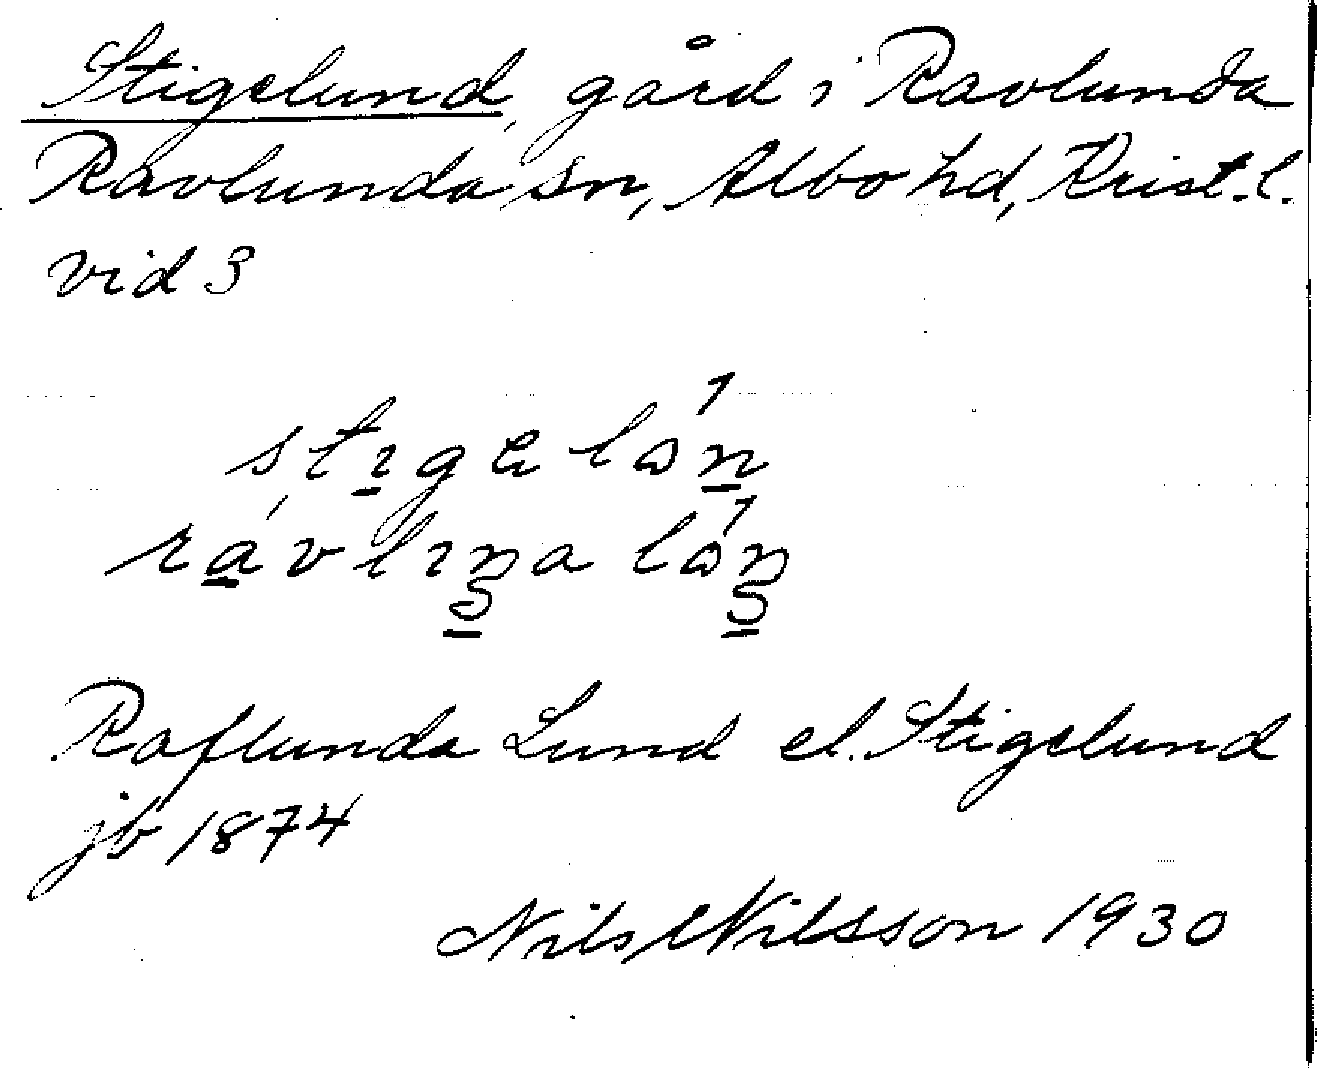 Stigelund, gård i Ravlunda
Ravlunda sn, Albo hd, Krist.l.
vid 3
stıgelón
rávlınalón
Raflunda Lund el. Stigelund
jb 1874
Nils Nilsson 1930